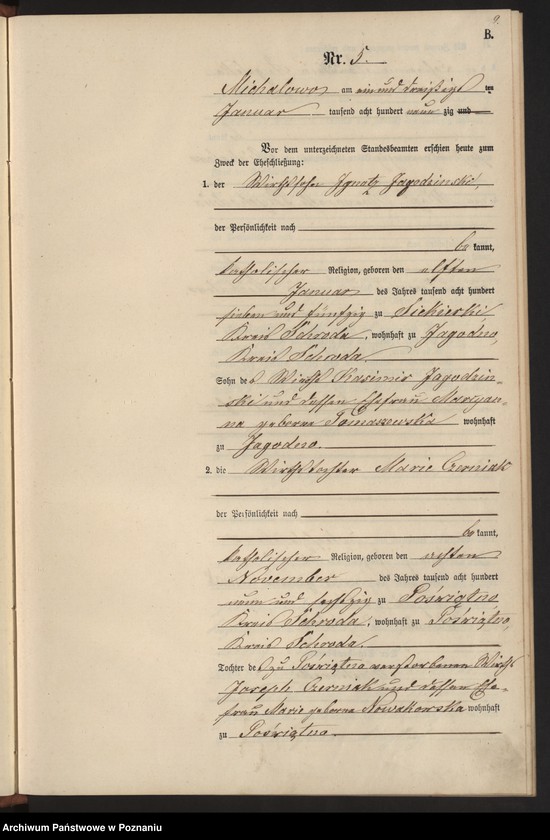 9.
B.
Nr. 5.
Michalowo am ein und dreißig ten
Januar tausend acht hundert neun zig und
Vor dem unterzeichneten Standesbeamten erschien heute zum
Zweck der Eheschließung:
1. der Wirthssohn Ignatz Jagodzinski,
der Persönlichkeit nach
be kannt,
katholischer Religion, geboren den elften
Januar des Jahres tausend acht hundert
sieben und fünfzig zu Siekierki
Kreis Schroda, wohnhaft zu Jagodno,
Kreis Schroda
Sohn des Wirths Kasimir Jagodzin-
ski und dessen Ehefrau Maryan-
na geborene Tomaszewska wohnhaft
zu Jagodno.
2. die Wirthstochter Marie Czerniak
der Persönlichkeit nach
be kannt,
katholischer Religion, geboren den achten
November des Jahres tausend acht hundert
neun und sechzig zu Pośviątno
Kreis Schroda, wohnhaft zu Pośviątno,
Kreis Schroda.
Tochter des zu Pośviątno verstorbenen Wirths
Joseph Czerniak und dessen Ehe-
frau Marie geborne Nowakowska wohnhaft
zu Pośviątno.
Archiwum Państwowe w Poznaniu